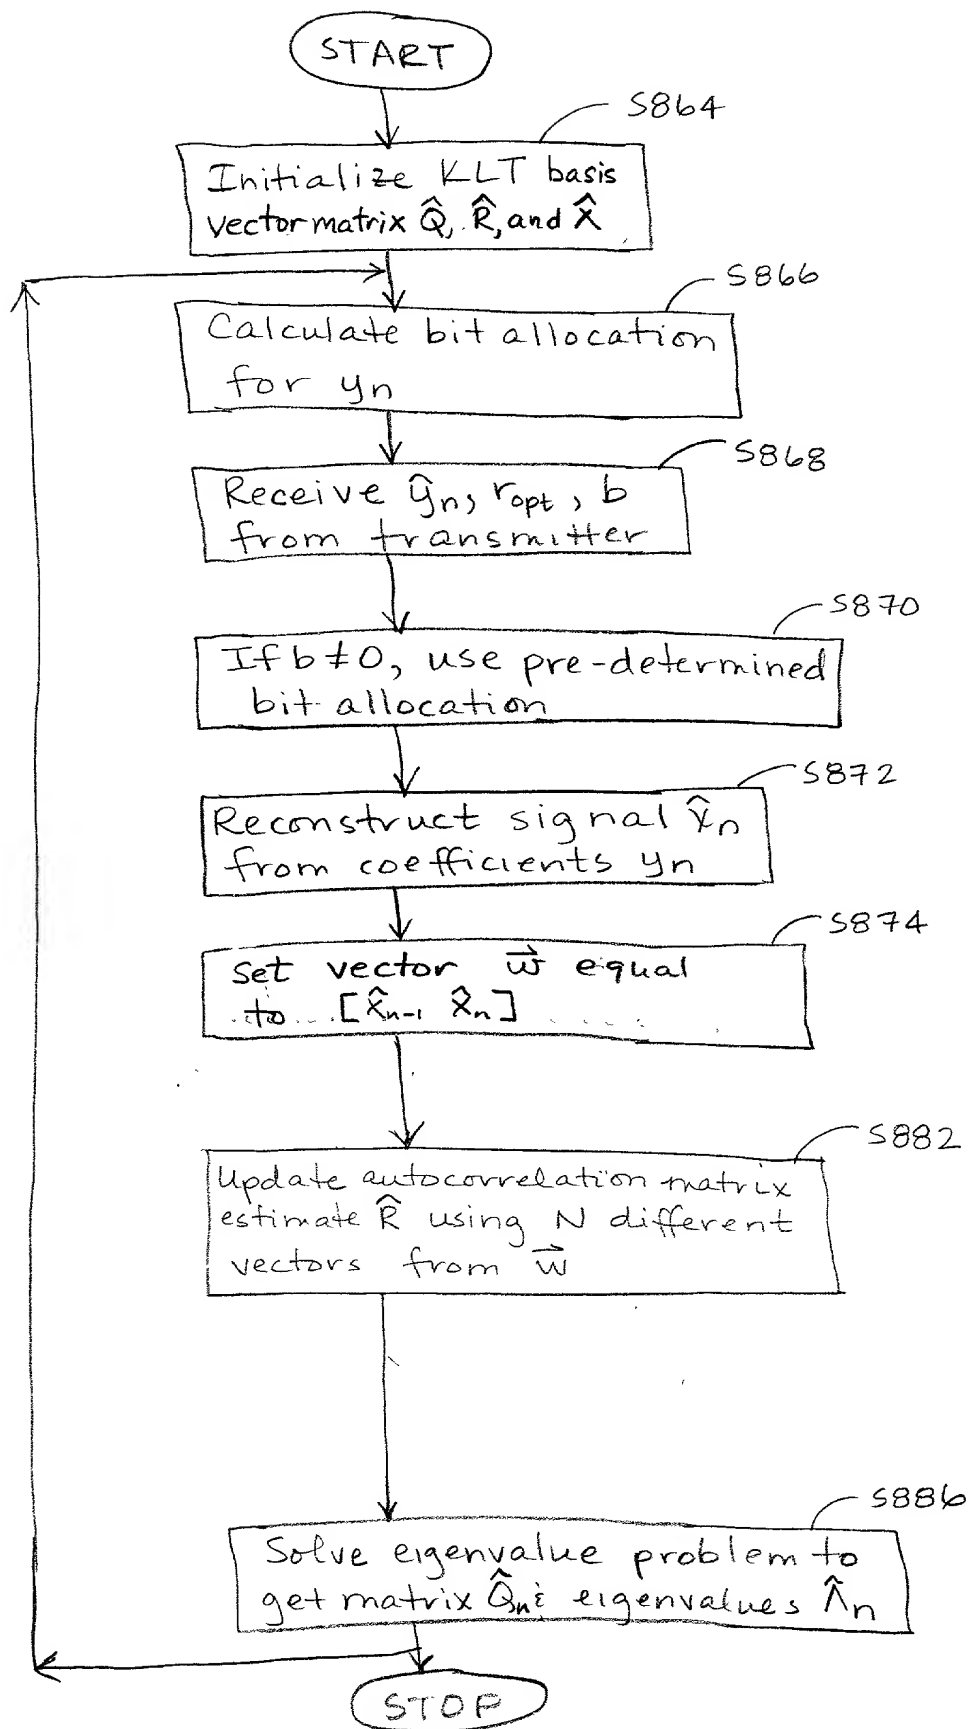 START
S864
Initialize KLT basis
vector matrix Q̂, R̂, and X̂
S866
Calculate bit allocation
for yn
S868
Receive ŷn, ropt, b
from transmitter
S870
If b≠0, use pre-determined
bit allocation
S872
Reconstruct signal x̂n
from coefficients yn
S874
Set vector w⃗ equal
to [x̂n-1 x̂n]
S882
Update autocorrelation matrix
estimate R̂ using N different
vectors from w⃗
S886
Solve eigenvalue problem to
get matrix Q̂n & eigenvalues Λ̂n
STOP